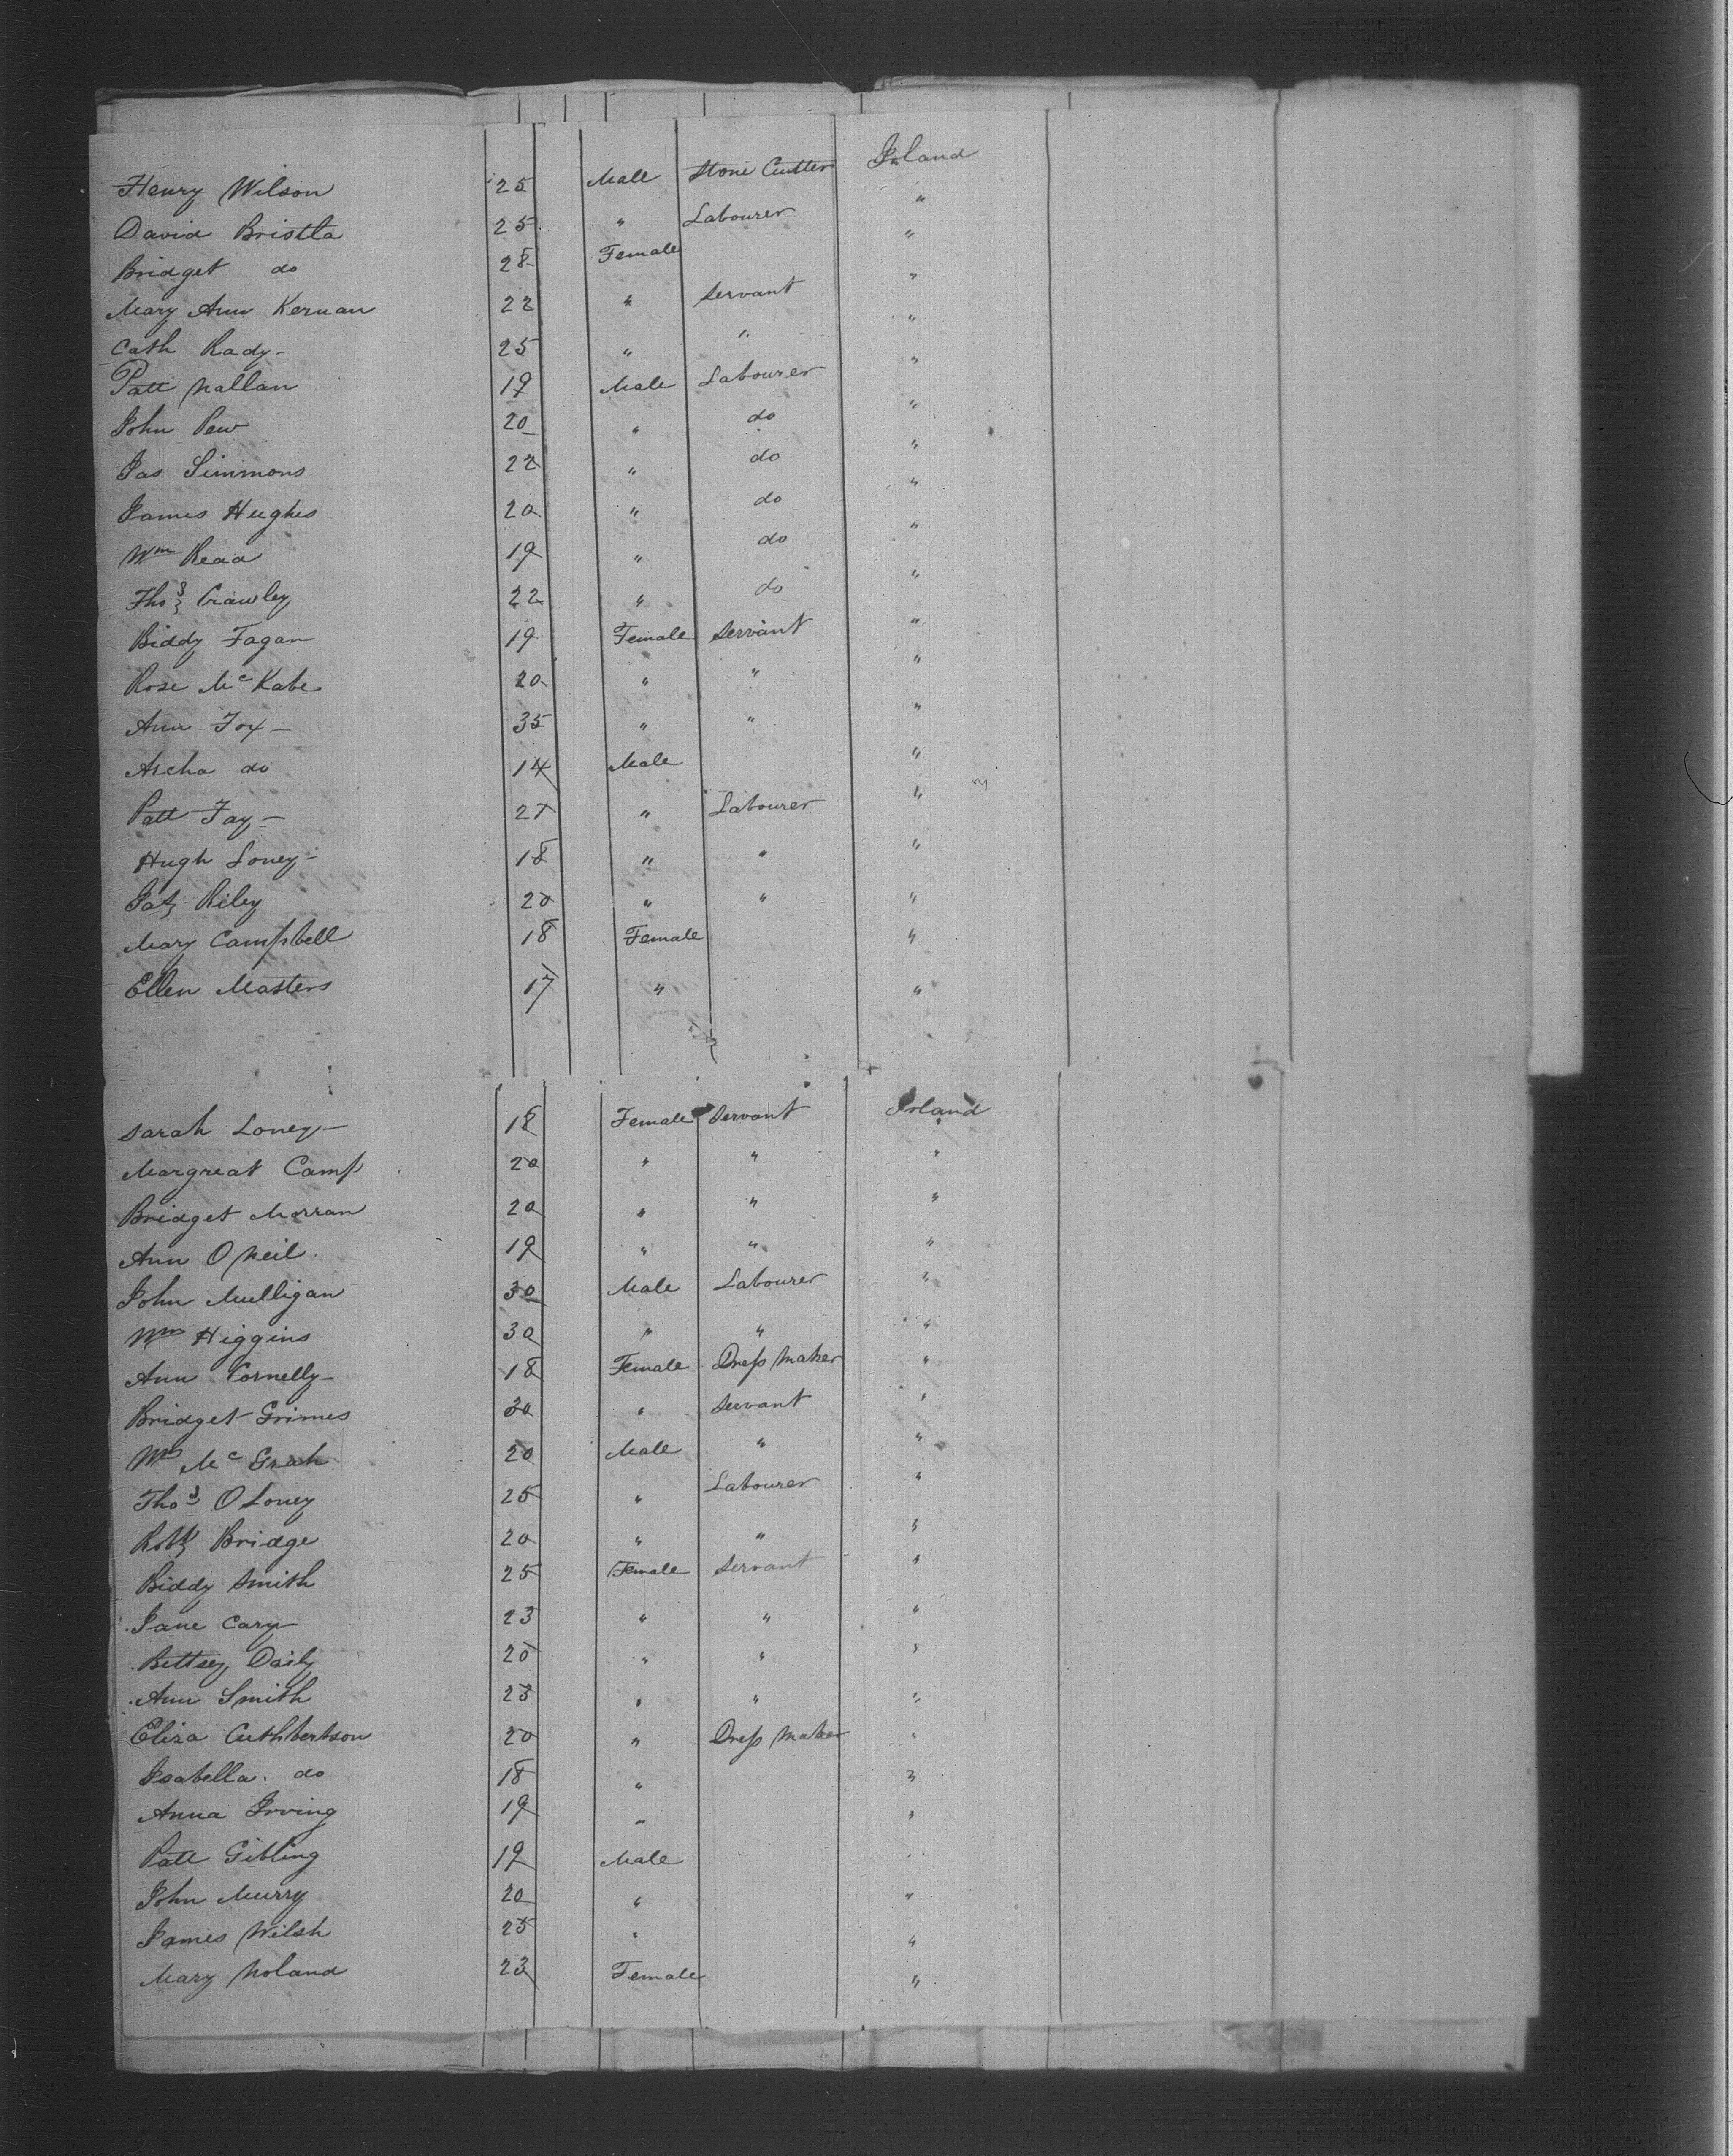 Henry Wilson 25 Male Stone Cutter Irland
David Bristla 25 " Labourer "
Bridget do 28 Female "
Mary Ann Kernan 22 " Servant "
Cath Rady - 25 " " "
Patt Nallan 19 Male Labourer "
John Pew 20 " do "
Jas Simmons 22 " do "
James Hughes 20 " do "
Wm Read 19 " do "
Thos Crawley 22 " do "
Biddy Fagan 19 Female Servant "
Rose McKabe 20 " " "
Ann Fox - 35 " " "
Archa do 14 Male "
Patt Fay - 27 " Labourer "
Hugh Loney - 18 " " "
Riley 20 " " "
Mary Campbell 18 Female "
Ellen Masters 17 " "
Sarah Loney - 18 Female Servant Irland
Margreat Camp 20 " " "
Bridget Morran 20 " " "
Ann O Neil 19 " " "
John Mulligan 30 Male Labourer "
Wm Higgins 30 " " "
Ann 18 Female Dress Maker "
Bridget Grimes 30 " Servant "
Wm McGrah 20 Male " "
Thos O Loney 25 " Labourer "
Robt Bridge 20 " " "
Biddy Smith 25 Female Servant "
Jane Cary 23 " " "
Bettsey Daily 20 " " "
Ann Smith 23 " " "
Eliza Cuthbertson 20 " Dress Maker "
Isabella do 18 " "
Anna Irving 19 " "
Patt Gibling 19 Male "
John Murry 20 " "
James Wilsh 25 " "
Mary Noland 23 Female "